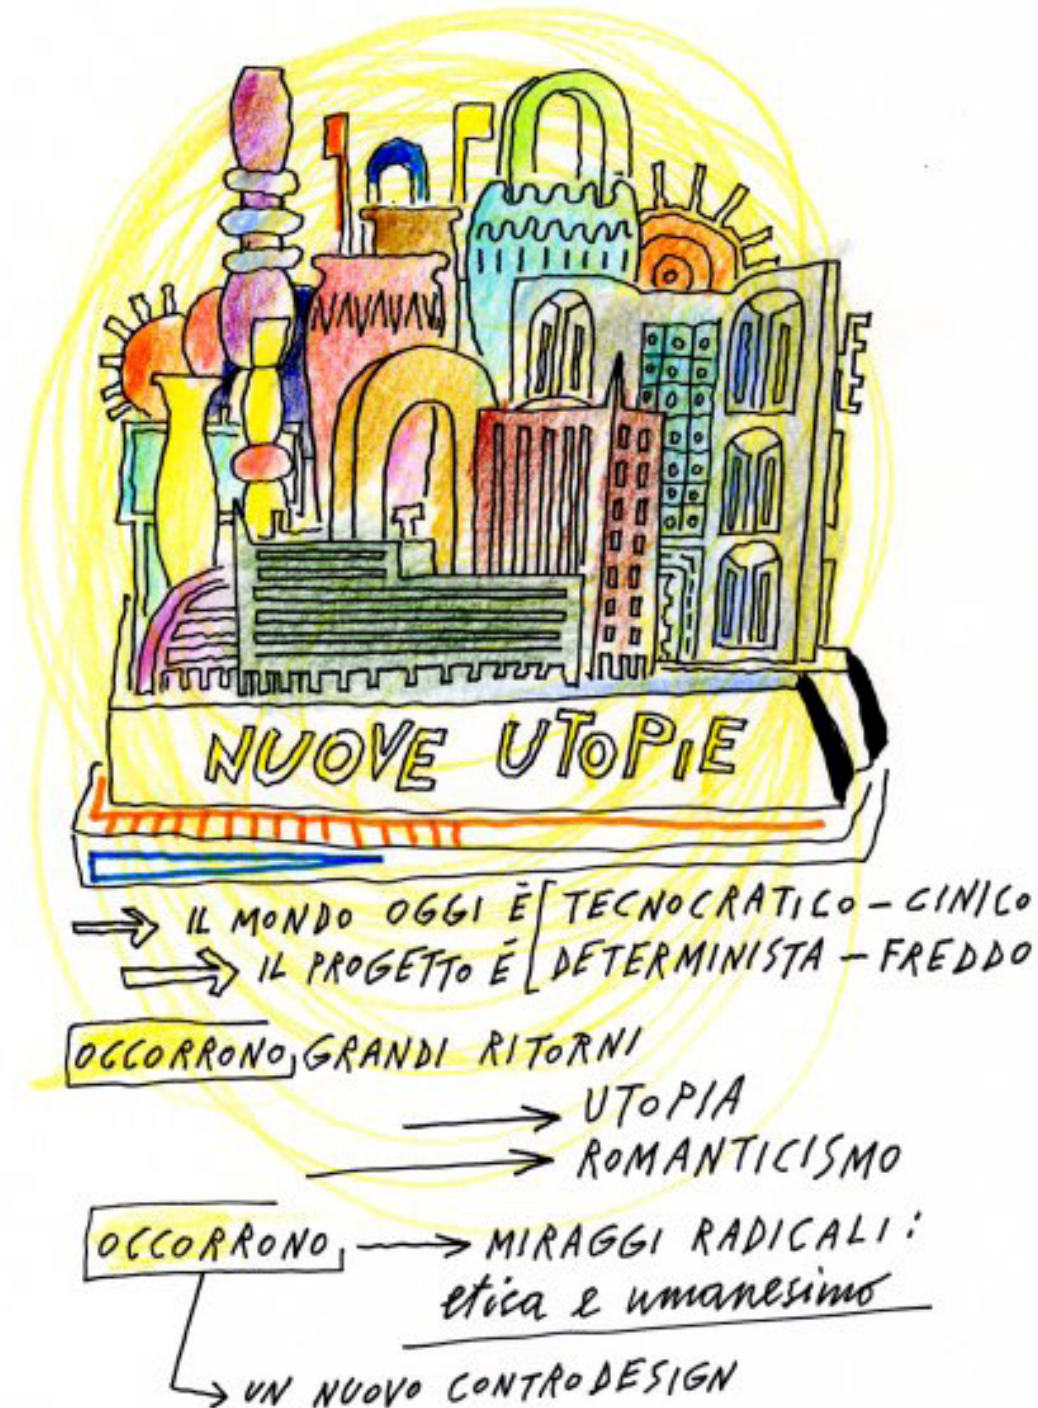 NUOVE UTOPIE
IL MONDO OGGI È [TECNOCRATICO - CINICO
IL PROGETTO É [DETERMINISTA - FREDDO
OCCORRONO GRANDI RITORNI
UTOPIA
ROMANTICISMO
OCCORRONO MIRAGGI RADICALI:
etica e umanesimo
UN NUOVO CONTRODESIGN